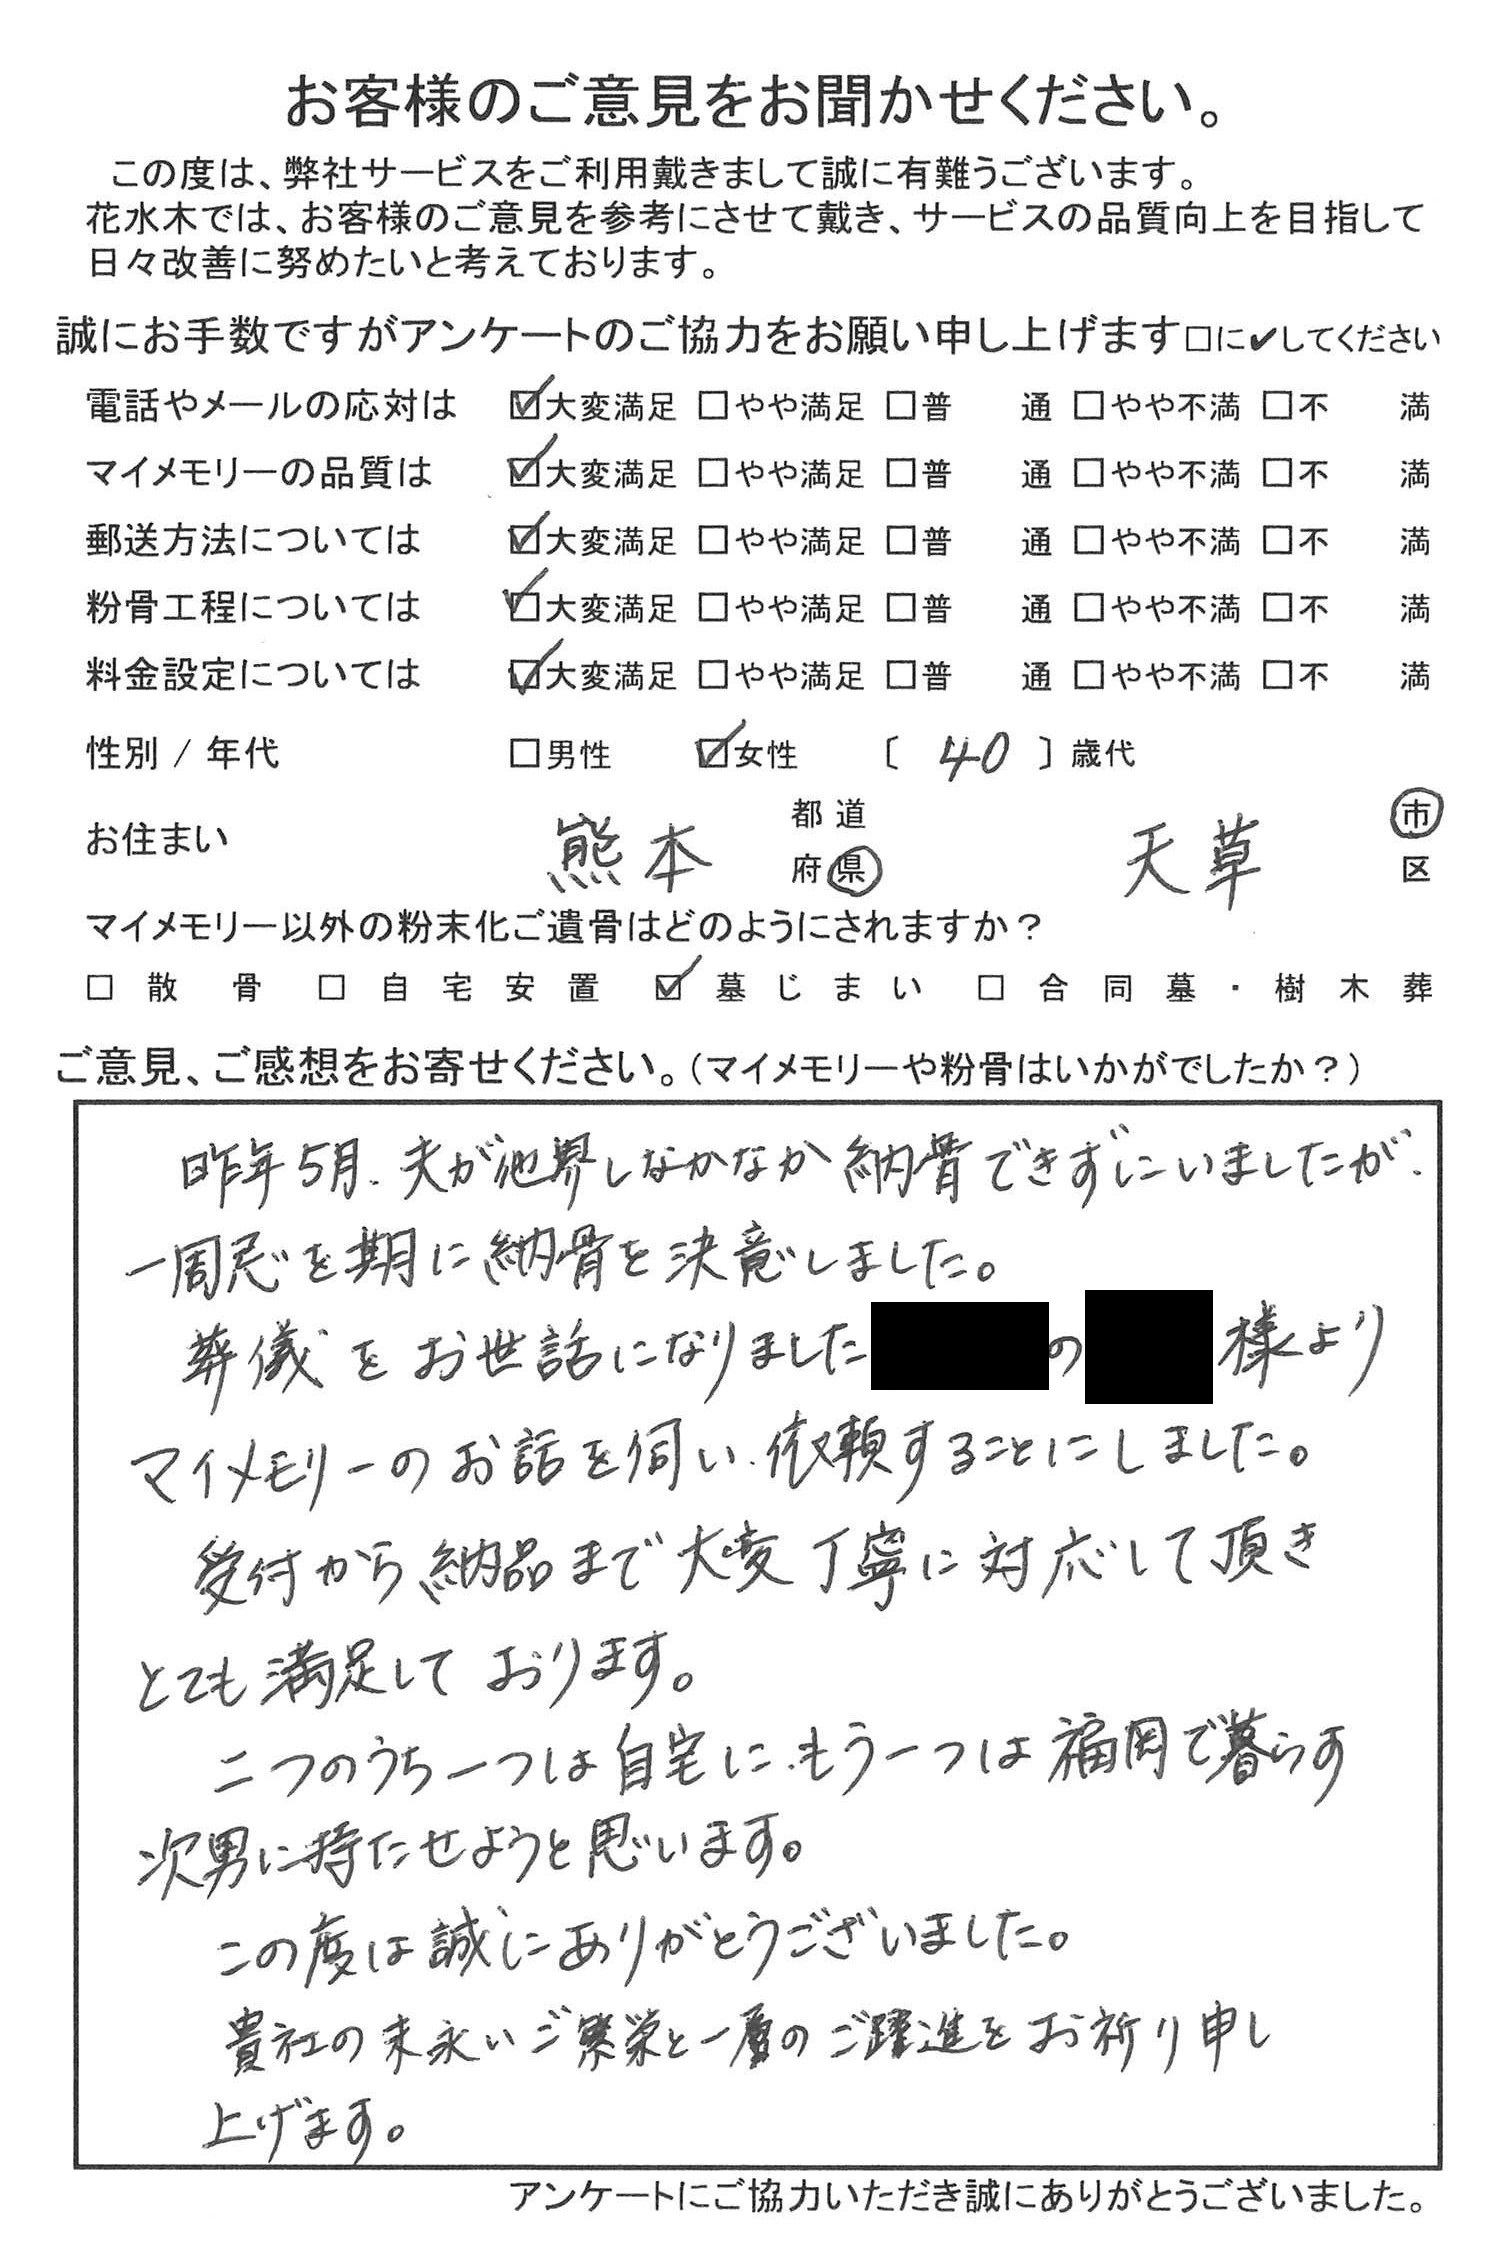 お客様のご意見をお聞かせください。
この度は、弊社サービスをご利用戴きまして誠に有難うございます。
花水木では、お客様のご意見を参考にさせて戴き、サービスの品質向上を目指して
日々改善に努めたいと考えております。
誠にお手数ですがアンケートのご協力をお願い申し上げます□に✔してください
電話やメールの応対は ☑大変満足 □やや満足 □普 通 □やや不満 □不 満
マイメモリーの品質は ☑大変満足 □やや満足 □普 通 □やや不満 □不 満
郵送方法については ☑大変満足 □やや満足 □普 通 □やや不満 □不 満
粉骨工程については ☑大変満足 □やや満足 □普 通 □やや不満 □不 満
料金設定については ☑大変満足 □やや満足 □普 通 □やや不満 □不 満
性別 / 年代 □男性 ☑女性 〔 40 〕歳代
お住まい 熊本 都道府県 天草 市区
マイメモリー以外の粉末化ご遺骨はどのようにされますか?
□ 散骨 □ 自宅安置 ☑ 墓じまい □ 合同墓・樹木葬
ご意見、ご感想をお寄せください。(マイメモリーや粉骨はいかがでしたか?)
昨年5月、夫が他界しなかなか納骨できずにいましたが、
一周忌を期に納骨を決意しました。
葬儀をお世話になりました の 様より
マイメモリーのお話を伺い、依頼することにしました。
受付から納品まで大変丁寧に対応して頂き
とても満足しております。
二つのうち一つは自宅に、もう一つは福岡で暮らす
次男に持たせようと思います。
この度は誠にありがとうございました。
貴社の末永いご繁栄と一層のご躍進をお祈り申し
上げます。
アンケートにご協力いただき誠にありがとうございました。